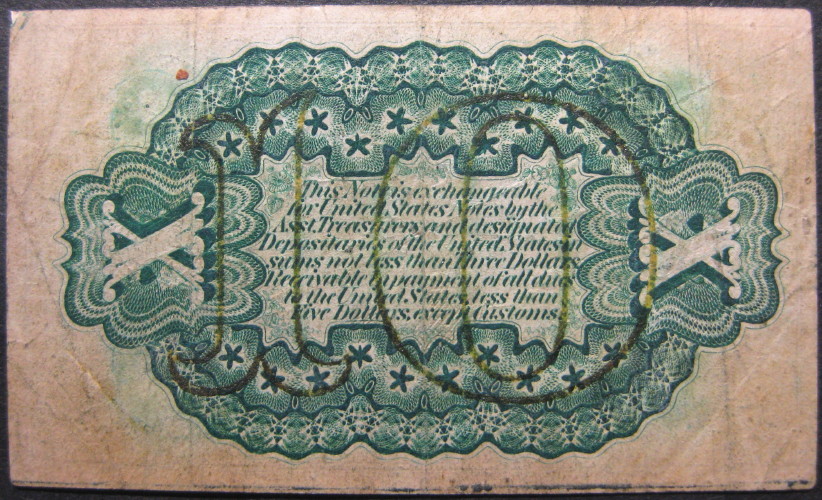 10
X X
This Note is exchangeable
for United States Notes by the
Asst. Treasurers and designated
Depositaries of the United States in
sums not less than Three Dollars.
Receivable in payment of all dues
to the United States less than
Five Dollars, except Customs.